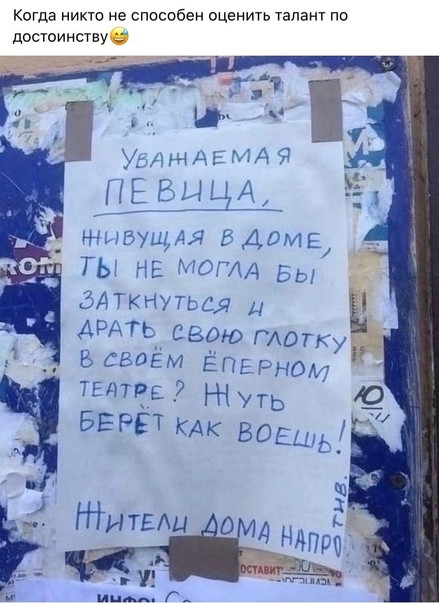 Когда никто не способен оценить талант по
достоинству😅
УВАЖАЕМАЯ
ПЕВИЦА,
ЖИВУЩАЯ В ДОМЕ,
ТЫ НЕ МОГЛА БЫ
ЗАТКНУТЬСЯ И
ДРАТЬ СВОЮ ГЛОТКУ
В СВОЁМ ЁПЕРНОМ
ТЕАТРЕ? ЖУТЬ
БЕРЁТ КАК ВОЕШЬ!
ЖИТЕЛИ ДОМА НАПРО
ТИВ.
Ю
ОСТАВИТ